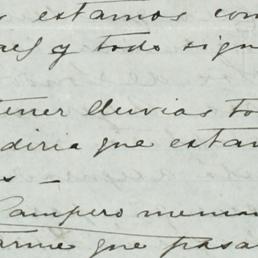 s estamos con
aes y todo sigue
tener lluvias to
diria que estan
s —
Pampero mema
arme que pasa